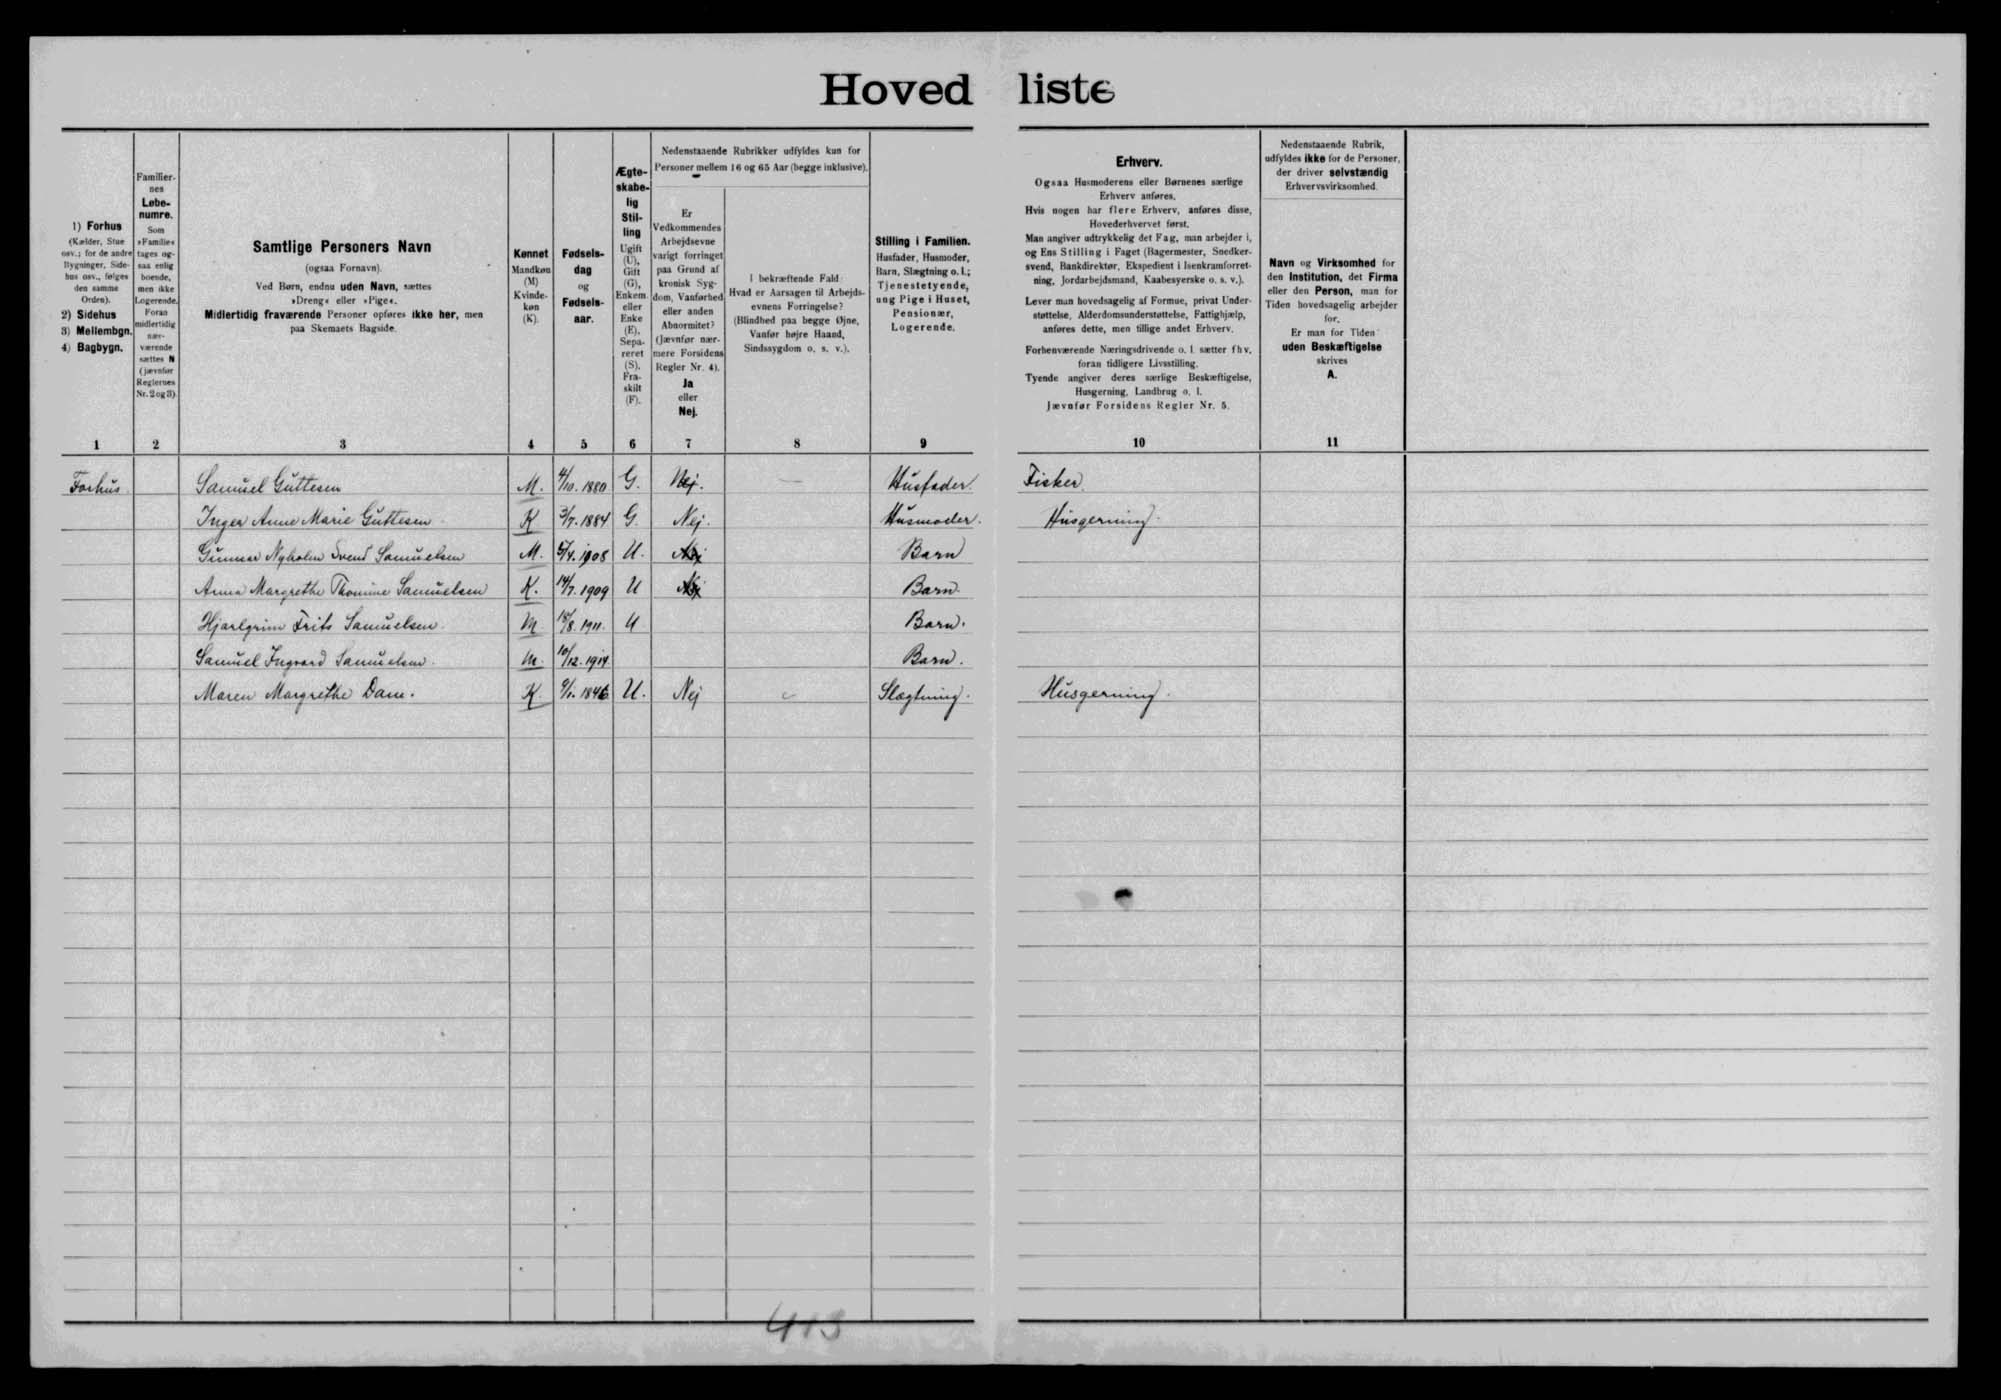 Hovedliste
1) Forhus
(Kælder, Stue
osv.; for de andre
Bygninger, Side-
hus osv., følges
den samme
Orden).
2) Sidehus
3) Mellembgn.
4) Bagbygn.
Familier-
nes
Løbe-
numre.
Som
»Familie«
tages og-
saa enlig
boende,
men ikke
Logerende.
Foran
midlertidig
nær-
værende
sættes N
(jævnfør
Reglernes
Nr. 2 og 3)
Samtlige Personers Navn
(ogsaa Fornavn).
Ved Børn, endnu uden Navn, sættes
»Dreng« eller »Pige«.
Midlertidig fraværende Personer opføres ikke her, men
paa Skemaets Bagside.
Kønnet
Mandkøn
(M)
Kvinde-
køn
(K).
Fødsels-
dag
og
Fødsels-
aar.
Ægte-
skabe-
lig
Stil-
ling
Ugift
(U),
Gift
(G),
Enkem.
eller
Enke
(E),
Sepa-
reret
(S),
Fra-
skilt
(F).
Nedenstaaende Rubrikker udfyldes kun for
Personer mellem 16 og 65 Aar (begge inklusive).
Er
Vedkommendes
Arbejdsevne
varigt forringet
paa Grund af
kronisk Syg-
dom, Vanførhed
eller anden
Abnormitet?
(Jævnfør nær-
mere Forsidens
Regler Nr. 4).
Ja
eller
Nej.
I bekræftende Fald:
Hvad er Aarsagen til Arbejds-
evnens Forringelse?
(Blindhed paa begge Øjne,
Vanfør højre Haand,
Sindssygdom o. s. v.).
Stilling i Familien.
Husfader, Husmoder,
Barn, Slægtning o. l.;
Tjenestetyende,
ung Pige i Huset,
Pensionær,
Logerende.
Erhverv.
Ogsaa Husmoderens eller Børnenes særlige
Erhverv anføres.
Hvis nogen har flere Erhverv, anføres disse,
Hovederhvervet først.
Man angiver udtrykkelig det Fag, man arbejder i,
og Ens Stilling i Faget (Bagermester, Snedker-
svend, Bankdirektør, Ekspedient i Isenkramforret-
ning, Jordarbejdsmand, Kaabesyerske o. s. v.).
Lever man hovedsagelig af Formue, privat Under-
støttelse, Alderdomsunderstøttelse, Fattighjælp,
anføres dette, men tillige andet Erhverv.
Forhenværende Næringsdrivende o. l. sætter fhv.
foran tidligere Livsstilling.
Tyende angiver deres særlige Beskæftigelse,
Husgerning, Landbrug o. l.
Jævnfør Forsidens Regler Nr. 5.
Nedenstaaende Rubrik,
udfyldes ikke for de Personer,
der driver selvstændig
Erhvervsvirksomhed.
Navn og Virksomhed for
den Institution, det Firma
eller den Person, man for
Tiden hovedsagelig arbejder
for.
Er man for Tiden
uden Beskæftigelse
skrives
A.
1 2 3 4 5 6 7 8 9 10 11
Forhus. Samuel Guttesen M. 4/10. 1880 G. Nej. — Husfader. Fisker.
Inger Anne Marie Guttesen. K 3/7. 1884 G. Nej. Husmoder. Husgerning.
Gunnar Nyholm Svend Samuelsen M. 5/4. 1908 U. Nej Barn
Anna Margrethe Thomine Samuelsen K. 14/7. 1909 U Nej Barn.
Hjarlgrim Frits Samuelsen. M 18/8. 1911. U Barn.
Samuel Ingvard Samuelsen. M. 10/12. 1914 Barn.
Maren Margrethe Dam. K 9/1. 1846 U. Nej Slægtning. Husgerning.
413